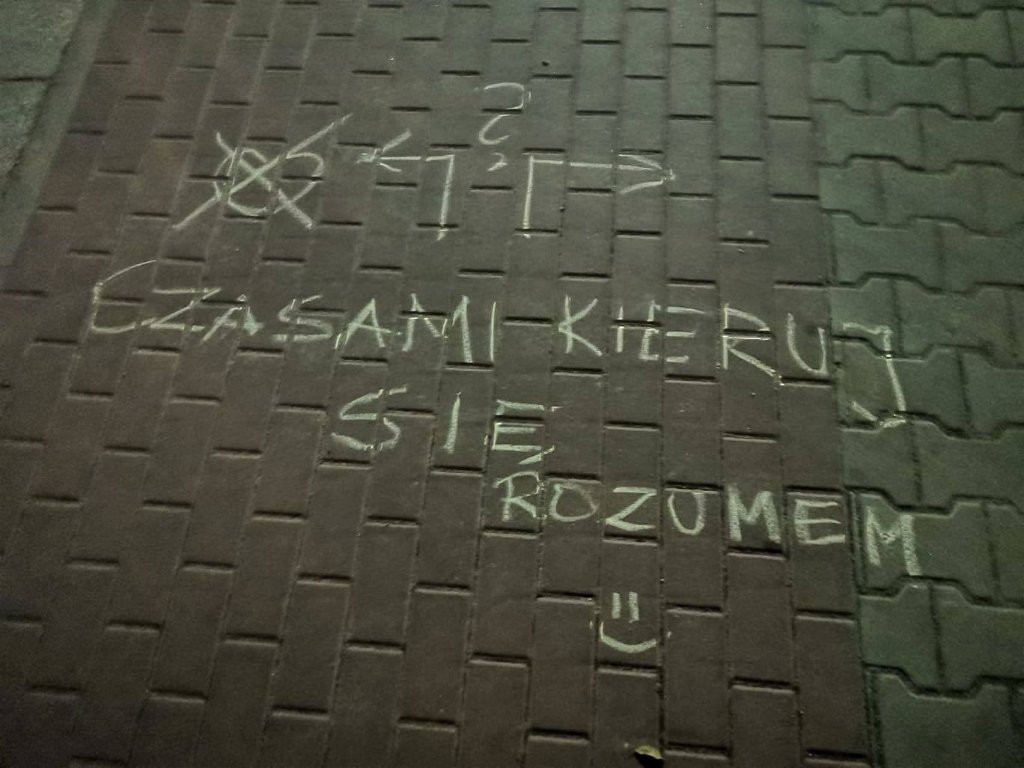 ?
CZASAMI KIERUJ
SIĘ
ROZUMEM
=)